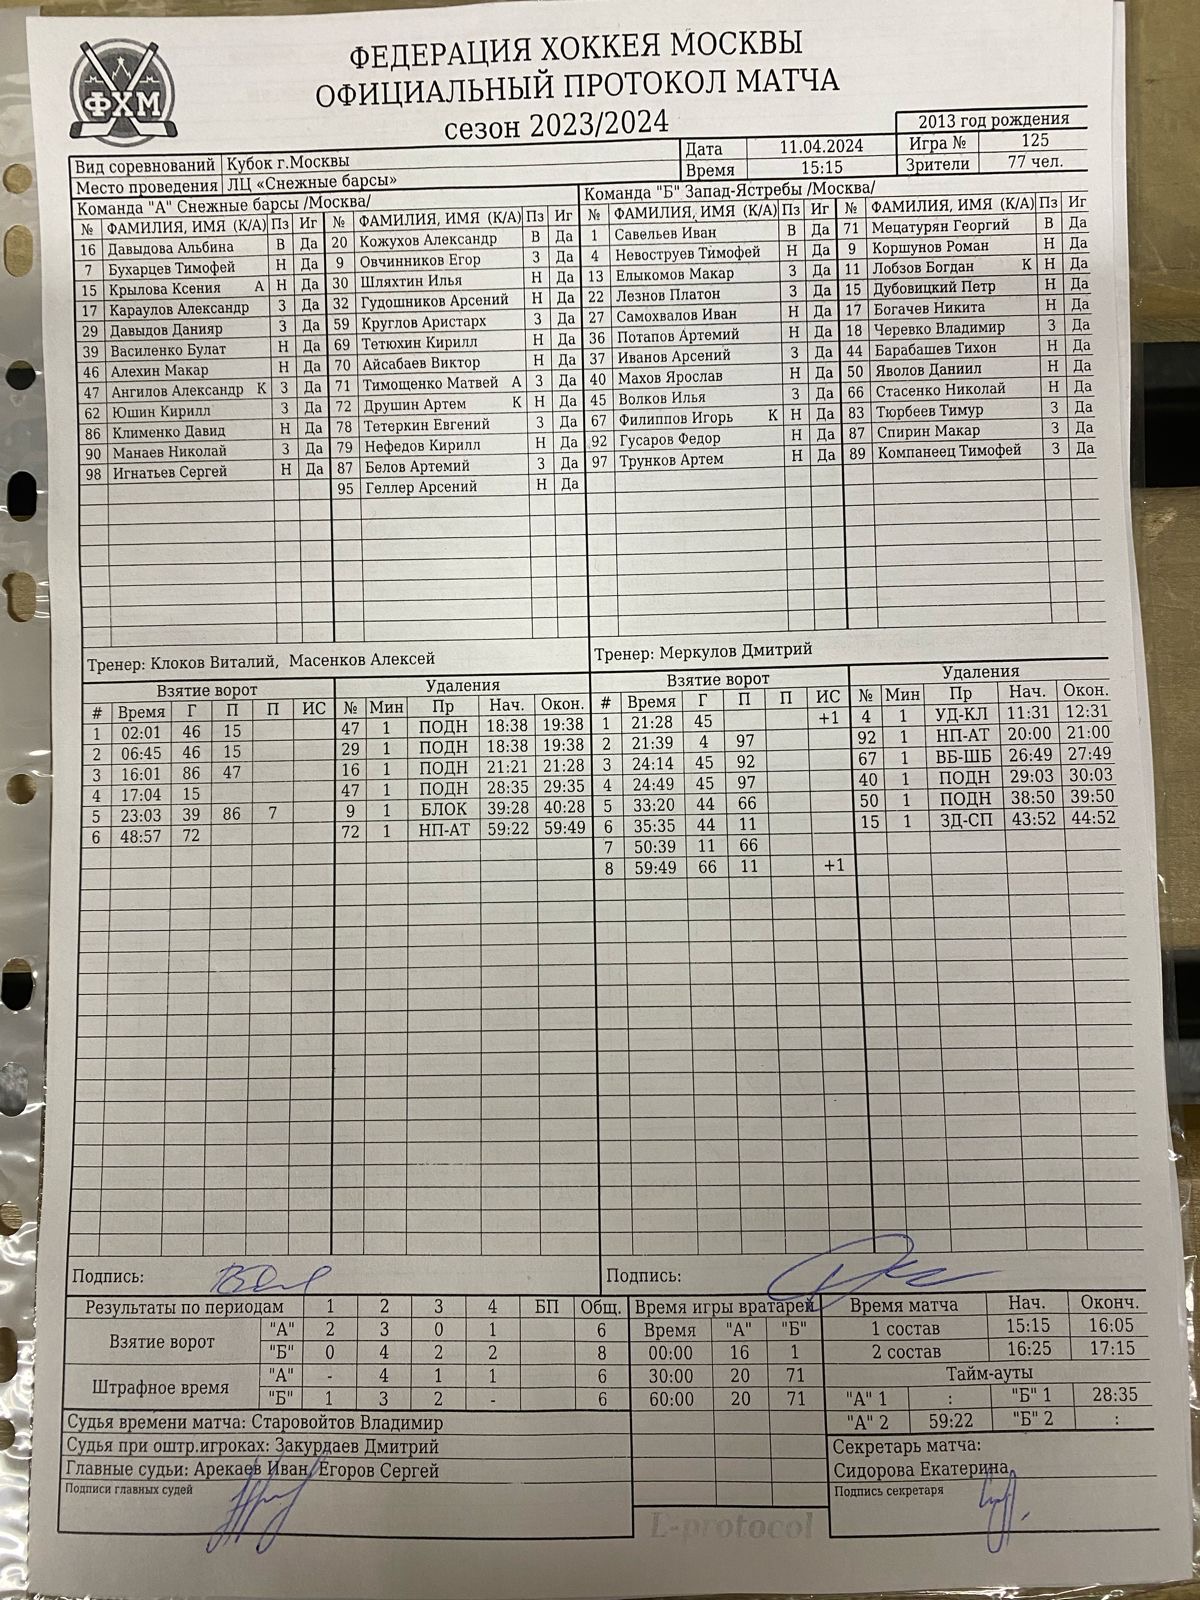 ФХМ
ФЕДЕРАЦИЯ ХОККЕЯ МОСКВЫ
ОФИЦИАЛЬНЫЙ ПРОТОКОЛ МАТЧА
сезон 2023/2024
2013 год рождения
Вид соревнований Кубок г.Москвы Дата 11.04.2024 Игра № 125
Место проведения ЛЦ «Снежные барсы» Время 15:15 Зрители 77 чел.
Команда "А" Снежные барсы /Москва/ Команда "Б" Запад-Ястребы /Москва/
№ ФАМИЛИЯ, ИМЯ (К/А) Пз Иг № ФАМИЛИЯ, ИМЯ (К/А) Пз Иг № ФАМИЛИЯ, ИМЯ (К/А) Пз Иг № ФАМИЛИЯ, ИМЯ (К/А) Пз Иг
16 Давыдова Альбина В Да 20 Кожухов Александр В Да 1 Савельев Иван В Да 71 Мецатурян Георгий В Да
7 Бухарцев Тимофей Н Да 9 Овчинников Егор З Да 4 Невоструев Тимофей Н Да 9 Коршунов Роман Н Да
15 Крылова Ксения А Н Да 30 Шляхтин Илья Н Да 13 Елыкомов Макар З Да 11 Лобзов Богдан К Н Да
17 Караулов Александр З Да 32 Гудошников Арсений Н Да 22 Лезнов Платон З Да 15 Дубовицкий Петр Н Да
29 Давыдов Данияр З Да 59 Круглов Аристарх З Да 27 Самохвалов Иван Н Да 17 Богачев Никита Н Да
39 Василенко Булат Н Да 69 Тетюхин Кирилл Н Да 36 Потапов Артемий Н Да 18 Черевко Владимир З Да
46 Алехин Макар Н Да 70 Айсабаев Виктор Н Да 37 Иванов Арсений З Да 44 Барабашев Тихон Н Да
47 Ангилов Александр К З Да 71 Тимощенко Матвей А З Да 40 Махов Ярослав Н Да 50 Яволов Даниил Н Да
62 Юшин Кирилл З Да 72 Друшин Артем К Н Да 45 Волков Илья З Да 66 Стасенко Николай Н Да
86 Клименко Давид Н Да 78 Тетеркин Евгений З Да 67 Филиппов Игорь К Н Да 83 Тюрбеев Тимур З Да
90 Манаев Николай З Да 79 Нефедов Кирилл Н Да 92 Гусаров Федор Н Да 87 Спирин Макар З Да
98 Игнатьев Сергей Н Да 87 Белов Артемий З Да 97 Трунков Артем Н Да 89 Компанеец Тимофей З Да
95 Геллер Арсений Н Да
Тренер: Клоков Виталий, Масенков Алексей Тренер: Меркулов Дмитрий
Взятие ворот Удаления Взятие ворот Удаления
# Время Г П П ИС № Мин Пр Нач. Окон. # Время Г П П ИС № Мин Пр Нач. Окон.
1 02:01 46 15 47 1 ПОДН 18:38 19:38 1 21:28 45 +1 4 1 УД-КЛ 11:31 12:31
2 06:45 46 15 29 1 ПОДН 18:38 19:38 2 21:39 4 97 92 1 НП-АТ 20:00 21:00
3 16:01 86 47 16 1 ПОДН 21:21 21:28 3 24:14 45 92 67 1 ВБ-ШБ 26:49 27:49
4 17:04 15 47 1 ПОДН 28:35 29:35 4 24:49 45 97 40 1 ПОДН 29:03 30:03
5 23:03 39 86 7 9 1 БЛОК 39:28 40:28 5 33:20 44 66 50 1 ПОДН 38:50 39:50
6 48:57 72 72 1 НП-АТ 59:22 59:49 6 35:35 44 11 15 1 ЗД-СП 43:52 44:52
7 50:39 11 66
8 59:49 66 11 +1
Подпись: Подпись:
Результаты по периодам 1 2 3 4 БП Общ. Время игры вратарей Время матча Нач. Оконч.
Взятие ворот "А" 2 3 0 1 6 Время "А" "Б" 1 состав 15:15 16:05
"Б" 0 4 2 2 8 00:00 16 1 2 состав 16:25 17:15
Штрафное время "А" - 4 1 1 6 30:00 20 71 Тайм-ауты
"Б" 1 3 2 - 6 60:00 20 71 "А" 1 : "Б" 1 28:35
Судья времени матча: Старовойтов Владимир "А" 2 59:22 "Б" 2 :
Судья при оштр.игроках: Закурдаев Дмитрий Секретарь матча:
Главные судьи: Арекаев Иван, Егоров Сергей Сидорова Екатерина
Подписи главных судей Подпись секретаря
E-protocol